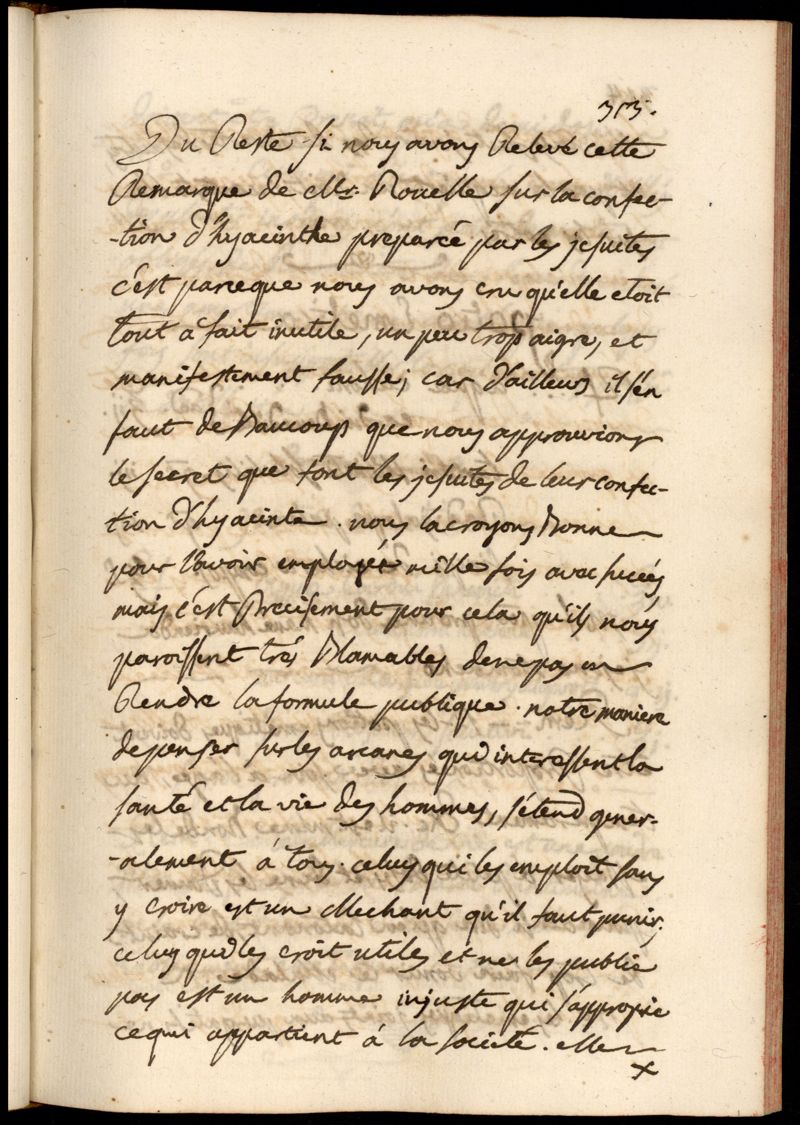 313.
Du Reste si nous avons Relevé cette
Remarque de Mr. Rouelle sur la confec-
-tion d'hyacinthe preparée par les jesuites
c'est parceque nous avons cru qu'elle etoit
tout a fait inutile, un peu trop aigre, et
manifestement fausse; car d'ailleurs il s'en
faut de Baucoup que nous approuvions
le secret que font les jesuites de leur confec-
tion d'hyacinte. nous la croyons Bonne
pour l'avoir employée mille fois avec succés
mais c'est Precisement pour cela qu'ils nous
paroissent trés Blamables de ne pas en
Rendre la formule publique. notre maniere
de penser sur les arcanes qui interessent la
santé et la vie des hommes, s'étend gener-
-alement á tous. celuy qui les emploit sans
y croire est un Mechant qu'il faut punir;
celuy qui les croit utiles et ne les publie
pas est un homme injuste qui s'approprie
ce qui appartient á la société. elle
x